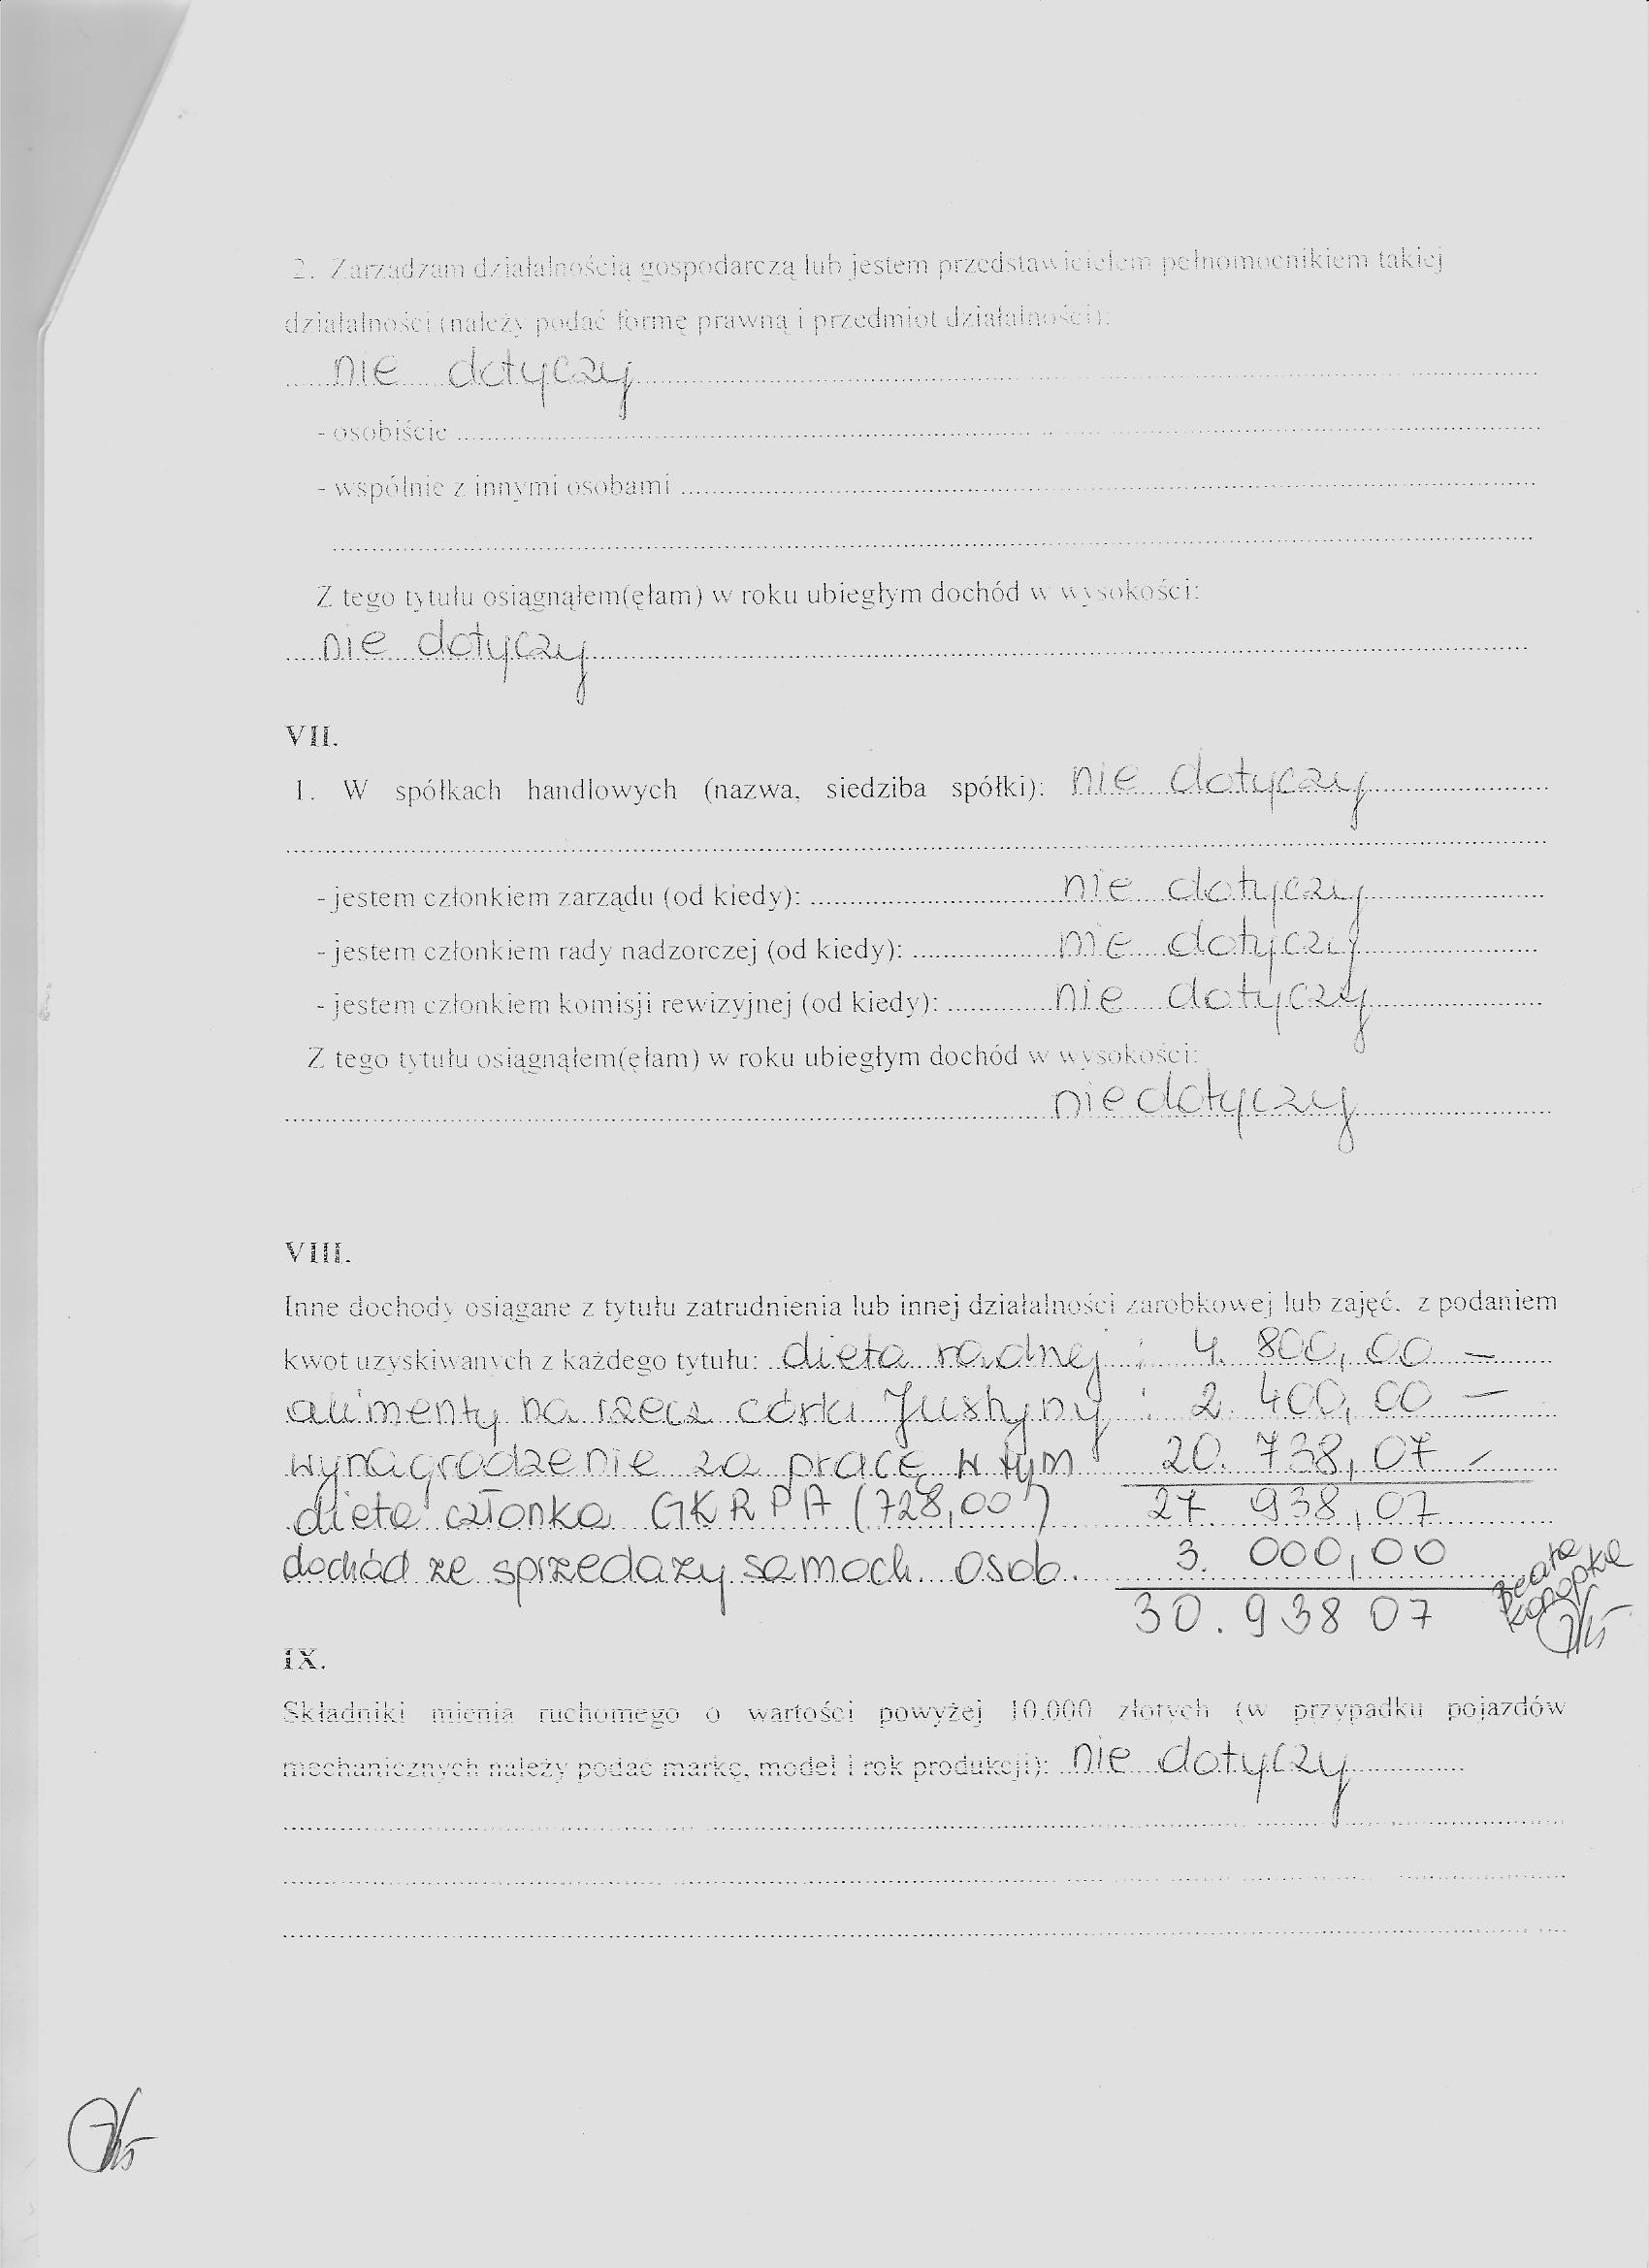 2. Zarządzam działalnością gospodarczą lub jestem przedstawicielem pełnomocnikiem takiej
działalności (należy podać formę prawną i przedmiot działalności):
nie dotyczy
- osobiście
- wspólnie z innymi osobami
Z tego tytułu osiągnąłem(ęłam) w roku ubiegłym dochód w wysokości:
nie dotyczy
VII.
1. W spółkach handlowych (nazwa, siedziba spółki): nie dotyczy
- jestem członkiem zarządu (od kiedy): nie dotyczy
- jestem członkiem rady nadzorczej (od kiedy): nie dotyczy
- jestem członkiem komisji rewizyjnej (od kiedy): nie dotyczy
Z tego tytułu osiągnąłem(ęłam) w roku ubiegłym dochód w wysokości:
nie dotyczy
VIII.
Inne dochody osiągane z tytułu zatrudnienia lub innej działalności zarobkowej lub zajęć, z podaniem
kwot uzyskiwanych z każdego tytułu: dieta radnej : 4. 800,00 –
alimenty na rzecz córki Justyny : 2. 400,00 –
wynagrodzenie za pracę w tym 20. 738,07 –
dieta członka GKRPA (728,00) 27 938,07
dochód ze sprzedaży samoch. osob. 3. 000,00
Beata
Konopka
30. 938 07
IX.
Składniki mienia ruchomego o wartości powyżej 10.000 złotych (w przypadku pojazdów
mechanicznych należy podać markę, model i rok produkcji): nie dotyczy